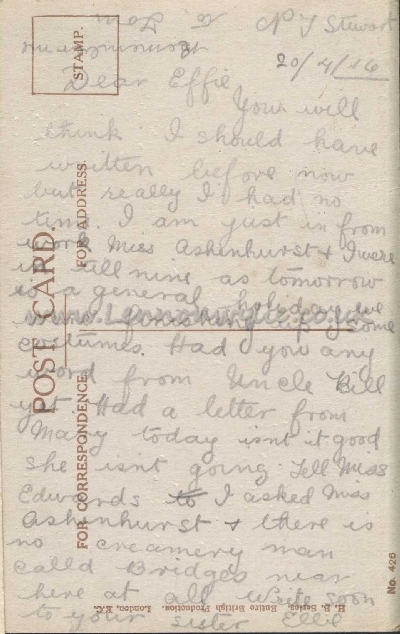 N I Stewart
20/4/16
Dear Effie
You will
think I should have
written before now
but really I had no
time. I am just in from
work Miss Ashenhurst & I were
in till nine as tomorrow
is a general holiday we
were finishing up some
costumes. Had you any
word from Uncle Bill
yet Had a letter from
Mary today isnt it good
she isnt going. Tell Miss
Edwards to I asked Miss
Ashenhurst & there is
no creamery man
calld Bridges near
here at all Write soon
to your sister Ellie
POST CARD.
FOR CORRESPONDENCE.
FOR ADDRESS.
STAMP.
H. B. Series. Entire British Production. London, E.C.
No. 426